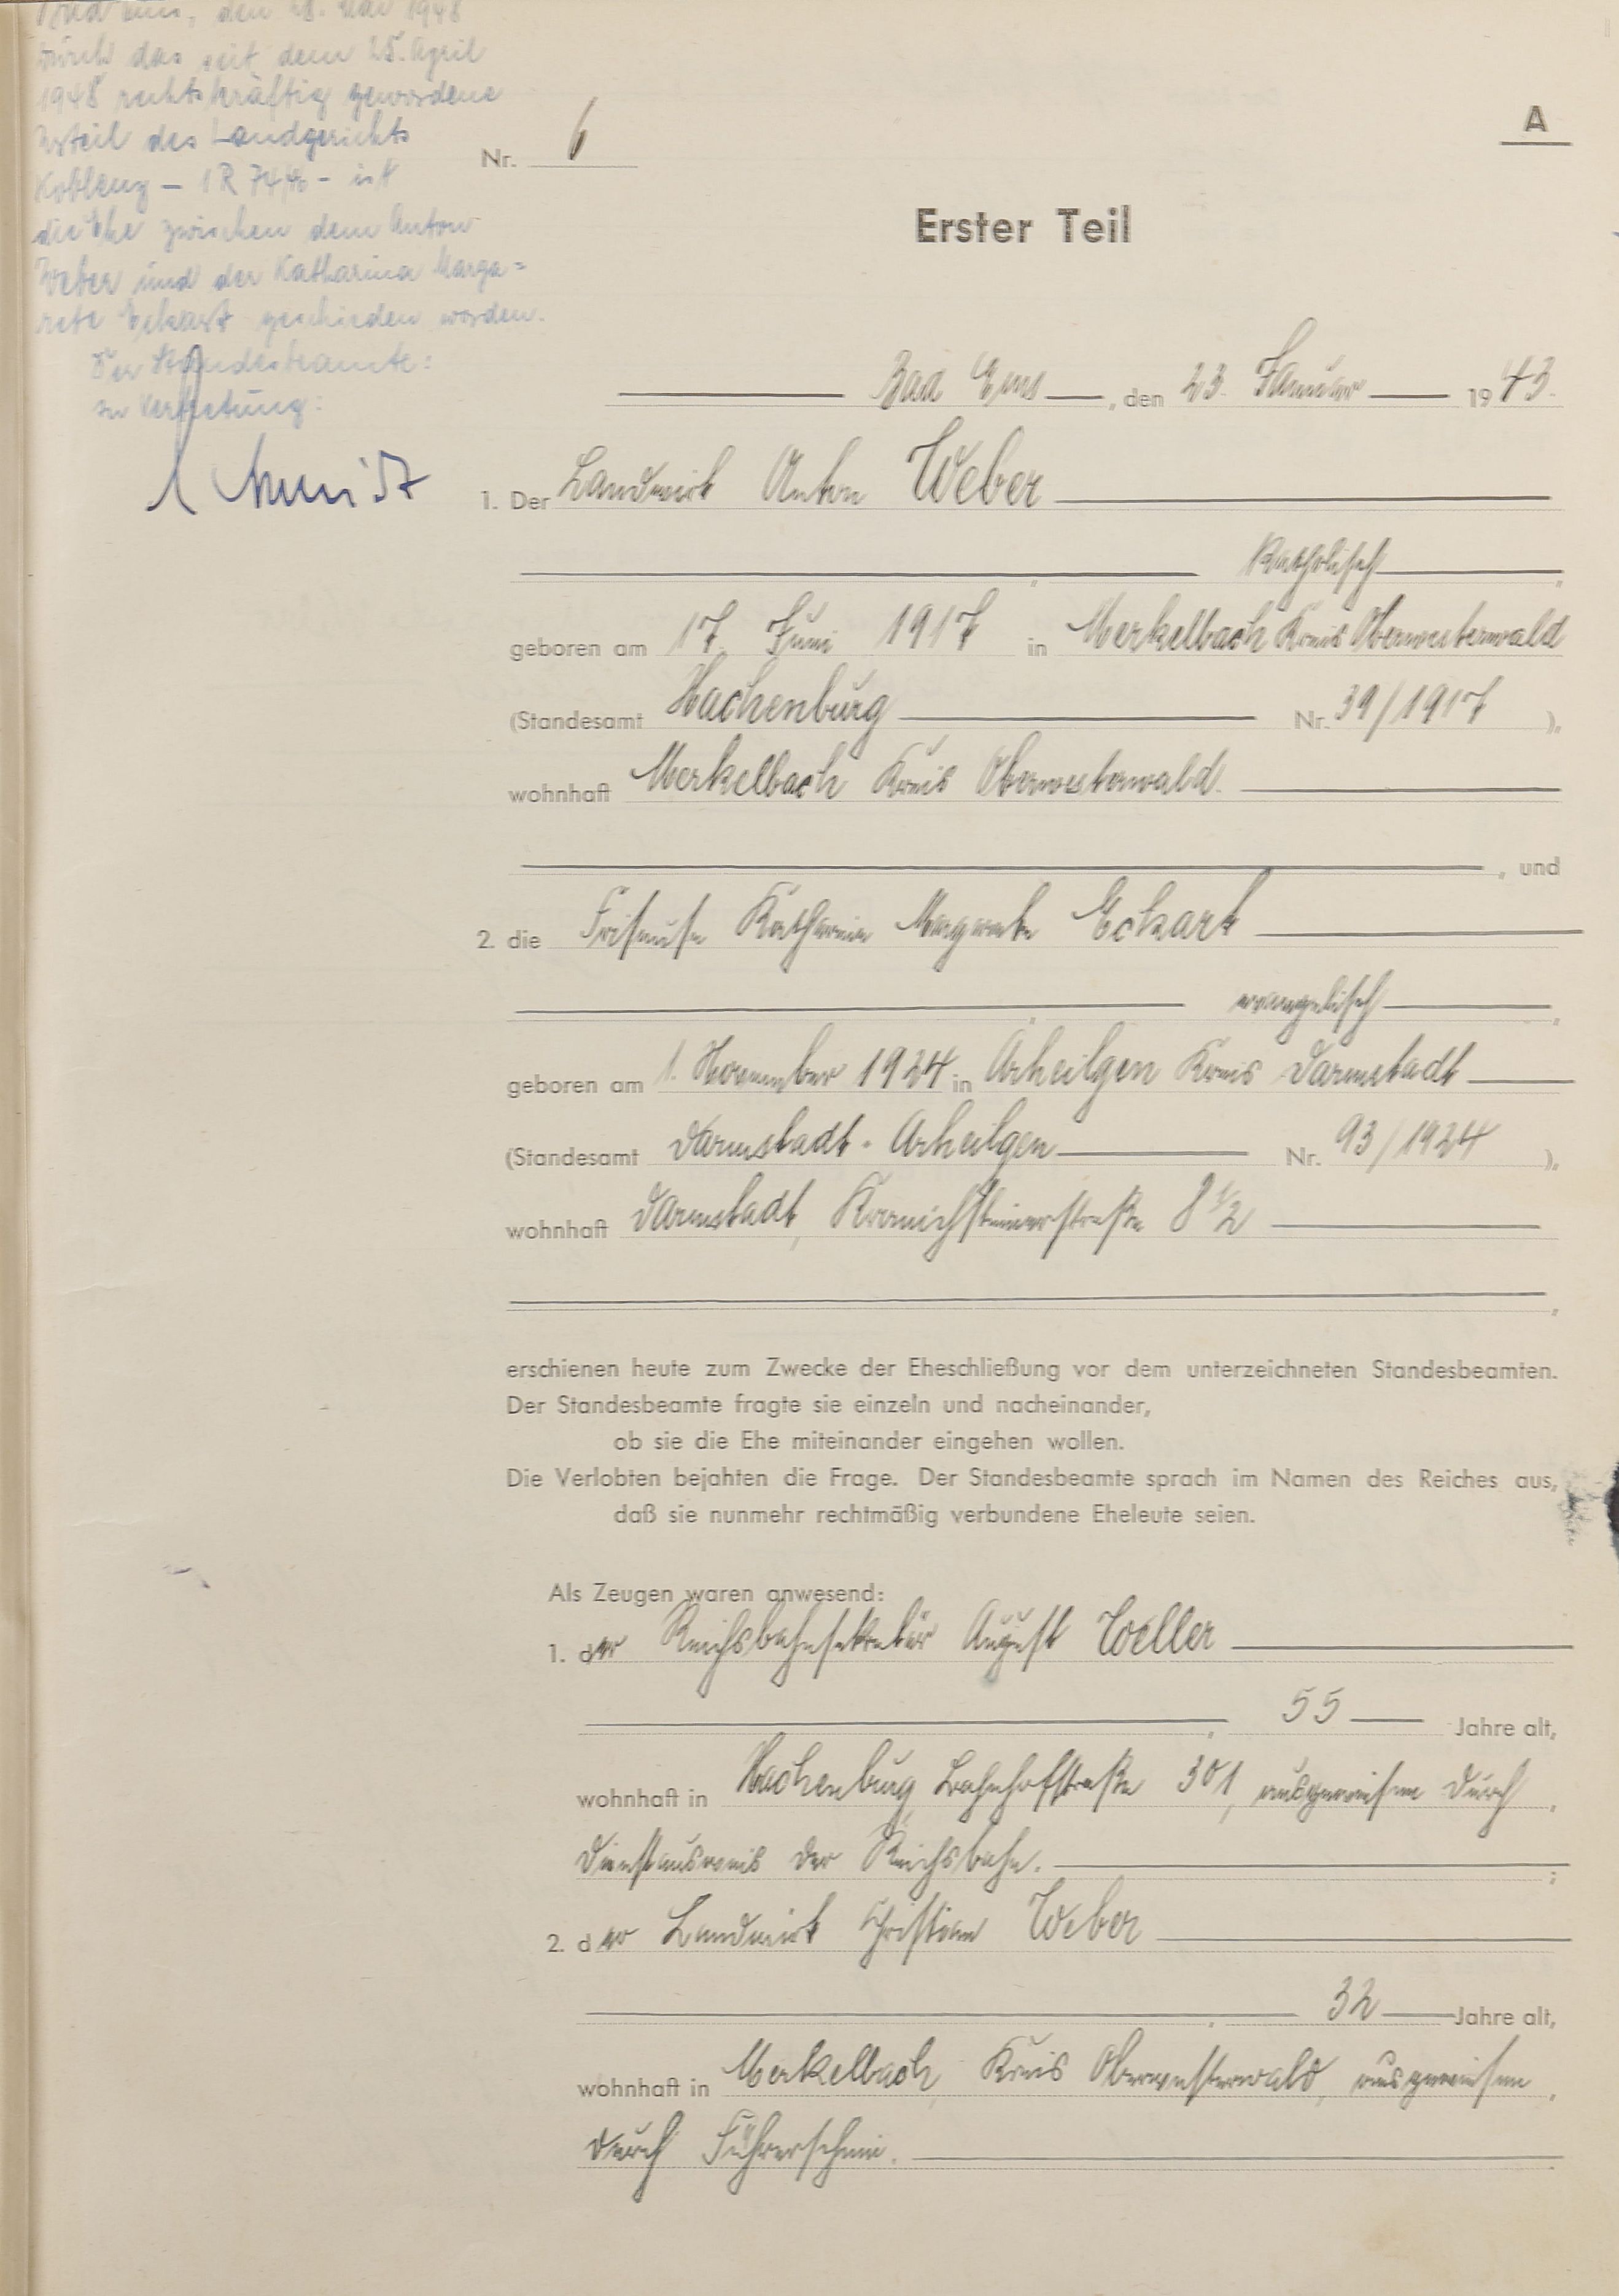 Bad Ems, den 28. Mai 1948
Durch das seit dem 25. April
1948 rechtskräftig gewordene
Urteil des Landgerichts
Koblenz – 1 R – ist
die Ehe zwischen dem Anton
Weber und der Katharina Marga=
rete Eckart geschieden worden.
Der Standesbeamte:
In Vertretung:
Schmidt
A
Nr. 6
Erster Teil
Bad Ems, den 23. Januar 1943.
1. Der Landwirt Anton Weber
, katholisch,
geboren am 17. Juni 1917 in Merkelbach Kreis Oberwesterwald
(Standesamt Hachenburg Nr. 39/1917 ),
wohnhaft Merkelbach Kreis Oberwesterwald.
, und
2. die Friseuse Katharina Margarete Eckart
, evangelisch,
geboren am 1. November 1924 in Arheilgen Kreis Darmstadt
(Standesamt Darmstadt-Arheilgen Nr. 93/1924 ),
wohnhaft Darmstadt, Kranichsteinerstraße 8 1/2
,
erschienen heute zum Zwecke der Eheschließung vor dem unterzeichneten Standesbeamten.
Der Standesbeamte fragte sie einzeln und nacheinander,
ob sie die Ehe miteinander eingehen wollen.
Die Verlobten bejahten die Frage. Der Standesbeamte sprach im Namen des Reiches aus,
daß sie nunmehr rechtmäßig verbundene Eheleute seien.
Als Zeugen waren anwesend:
1. der Reichsbahnsekretär August Zoeller
, 55 Jahre alt,
wohnhaft in Hachenburg, Bahnhofstraße 301, ausgewiesen durch ,
Dienstausweis der Reichsbahn. ;
2. der Landwirt Christian Weber
, 32 Jahre alt,
wohnhaft in Merkelbach, Kreis Oberwesterwald, ausgewiesen ,
durch Führerschein.